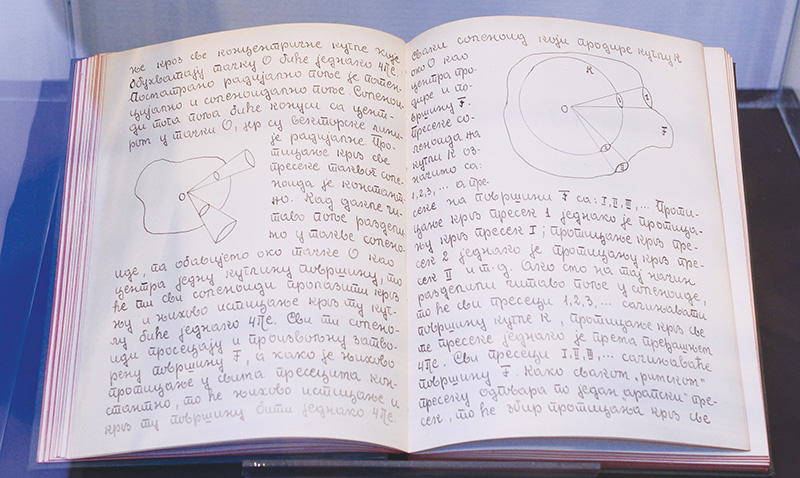 ње кроз све концентричне кугле које
обухватају тачку O биће једнако 4πe.
Посматрано радијално поље је потен-
цијално и соленоидално поље. Соленои-
ди тога поља биће конуси са цент-
ром у тачки O, јер су векторске лини-
је радијалне. Про-
тицање кроз све
пресеке таквог соле-
ноида је констант-
но. Кад дакле чи-
таво поље раздели-
мо у такве солено-
O
иде, па обавијемо око тачке O као
центра једну куглину површину, то
ће ти сви соленоиди пролазити кроз
њу и њихово истицање кроз ту куг-
лу биће једнако 4πe. Сви ти солено-
иди просецају и произвољну затво-
рену површину F, а како је њихово
протицање у свима пресецима кон-
стантно, то ће њихово истицање и
кроз ту површину бити једнако 4πe.
Сваки соленоид који продире куглу K
око O као
центра про-
дире и по-
вршину F.
Пресеке со-
леноида на
кугли K оз-
начимо са:
1,2,3,... а пре-
K
O
1
I
2
II
F
секе на површини F са: I, II, III,... Проти-
цање кроз пресек 1 једнако је протица-
њу кроз пресек I; протицање кроз пре-
сек 2 једнако је протицању кроз пре-
сек II и т.д. Ако смо на тај начин
разделили читаво поље у соленоиде,
то ће сви пресеци 1,2,3,... сачињавати
површину кугле K, протицање кроз све
те пресеке једнако је према пређашњем
4πe. Сви пресеци I, II, III,... сачињаваће
површину F. Како сваком „римском"
пресеку одговара по један „арапски" пре-
сек, то ће збир протицања кроз све